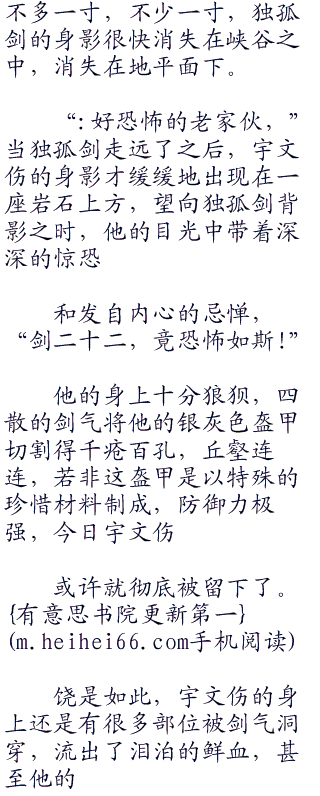 不多一寸，不少一寸，独孤
剑的身影很快消失在峡谷之
中，消失在地平面下。
“:好恐怖的老家伙，”
当独孤剑走远了之后，宇文
伤的身影才缓缓地出现在一
座岩石上方，望向独孤剑背
影之时，他的目光中带着深
深的惊恐
和发自内心的忌惮，
“剑二十二，竟恐怖如斯!”
他的身上十分狼狈，四
散的剑气将他的银灰色盔甲
切割得千疮百孔，丘壑连
连，若非这盔甲是以特殊的
珍惜材料制成，防御力极
强，今日宇文伤
或许就彻底被留下了。
{有意思书院更新第一}
(m.heihei66.com手机阅读)
饶是如此，宇文伤的身
上还是有很多部位被剑气洞
穿，流出了泪泊的鲜血，甚
至他的